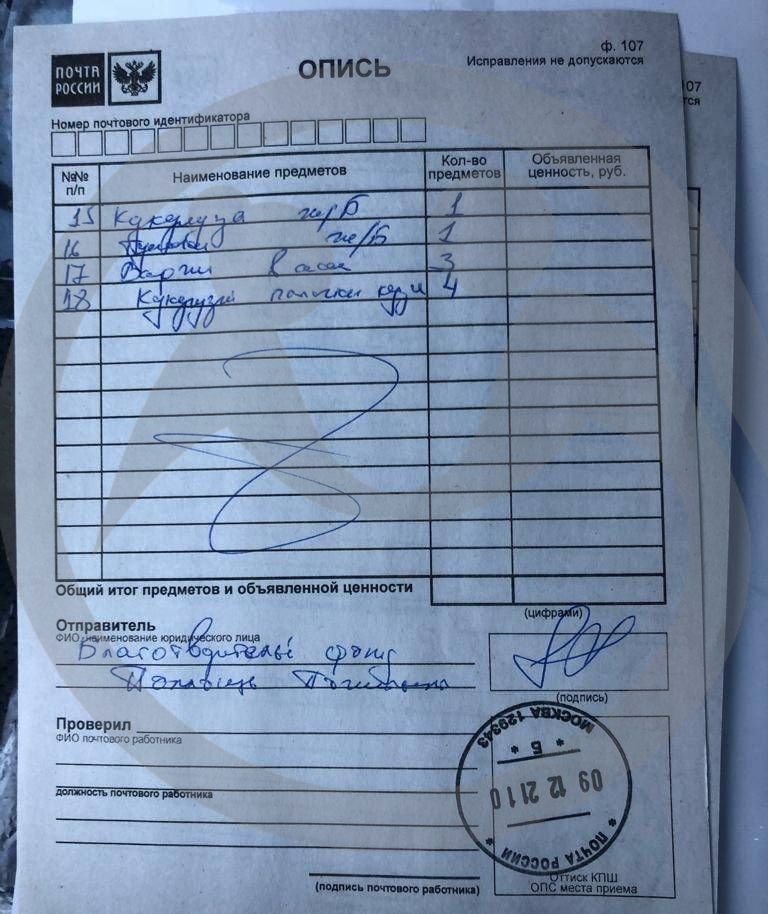 ф. 107
Исправления не допускаются
ПОЧТА
РОССИИ
ОПИСЬ
07
тся
Номер почтового идентификатора
№№
п/п
Наименование предметов
Кол-во
предметов
Объявленная
ценность, руб.
15 Кукуруза ж/Б 1
16 ж/Б 1
17 3
18 Кукурузн палочки 4
Общий итог предметов и объявленной ценности
(цифрами)
Отправитель
ФИО, наименование юридического лица
Благотворительный фонд
Помощь
(подпись)
Проверил
ФИО почтового работника
должность почтового работника
(подпись почтового работника)
МОСКВА 129343
* Б *
09 12 21 10
* ПОЧТА РОССИИ *
Оттиск КПШ
ОПС места приема